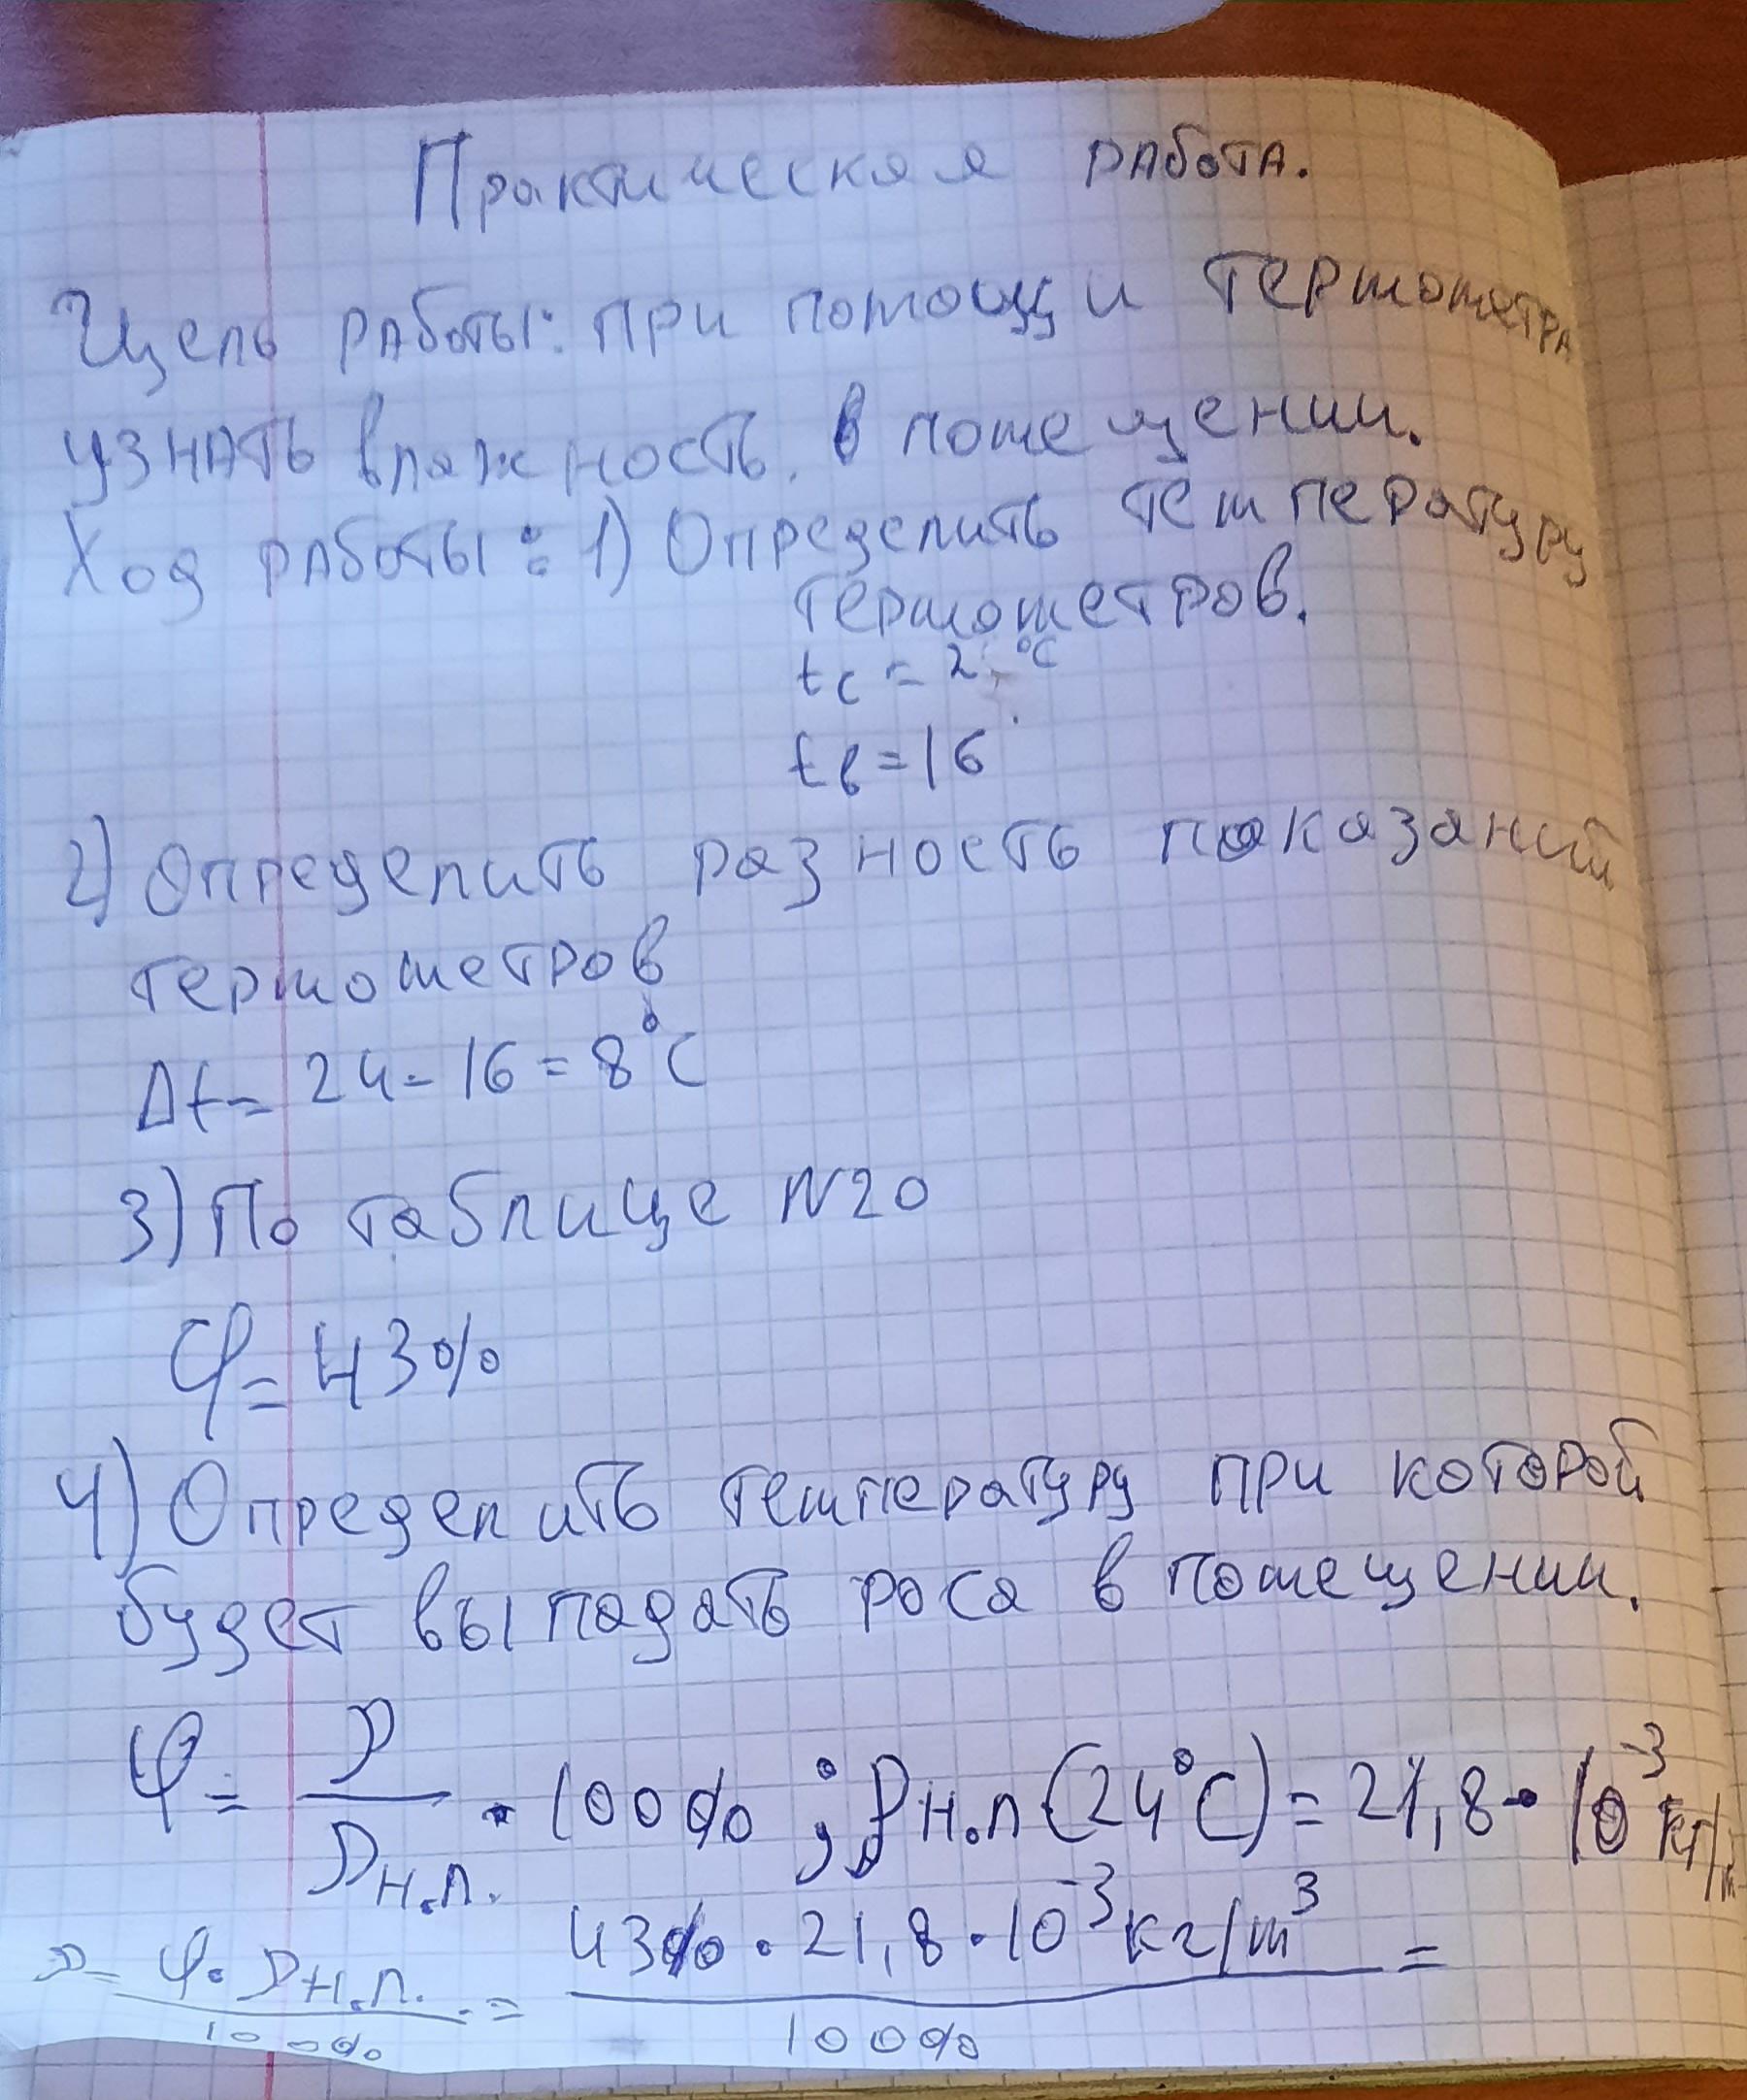 Практическая работа.
Цель работы: при помощи термометра
узнать влажность в помещении.
Ход работы: 1) Определить температуру
термометров.
tс = 2 °C
tв = 16
2) Определить разность показаний
термометров
Δt = 24 - 16 = 8°C
3) По таблице N20
φ = 43%
4) Определить температуру при которой
будет выпадать роса в помещении.
φ = ρ/ρн.п. · 100% ; ρн.п (24°C) = 21,8 · 10⁻³ кг/м³
ρ = φ · ρн.п. / 100% = 43% · 21,8 · 10⁻³ кг/м³ / 100% =